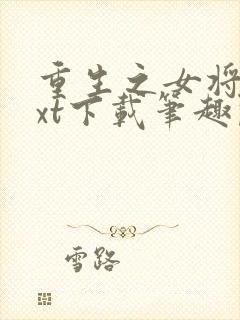 重生之女将
xt下载笔趣
雪路